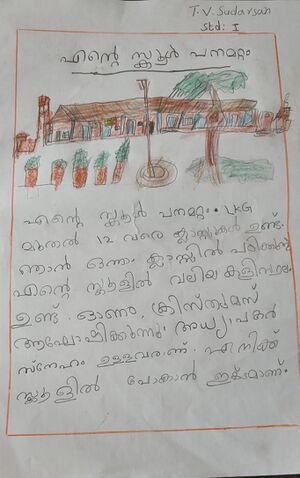 T. V. Sudarsan
Std: I
എന്റെ സ്കൂൾ പനമറ്റം
എന്റെ സ്കൂൾ പനമറ്റം. LKG
മുതൽ 12 വരെ ക്ലാസ്സുകൾ ഉണ്ട്.
ഞാൻ ഒന്നാം ക്ലാസ്സിൽ പഠിക്കുന്നു
എന്റെ സ്കൂളിൽ വലിയ കളിസ്ഥലം
ഉണ്ട്. ഓണം, ക്രിസ്തുമസ്
ആഘോഷിക്കുന്നു. അധ്യാപകർ
സ്നേഹം ഉള്ളവരാണ്. എനിക്ക്
സ്കൂളിൽ പോകാൻ ഇഷ്ടമാണ്.